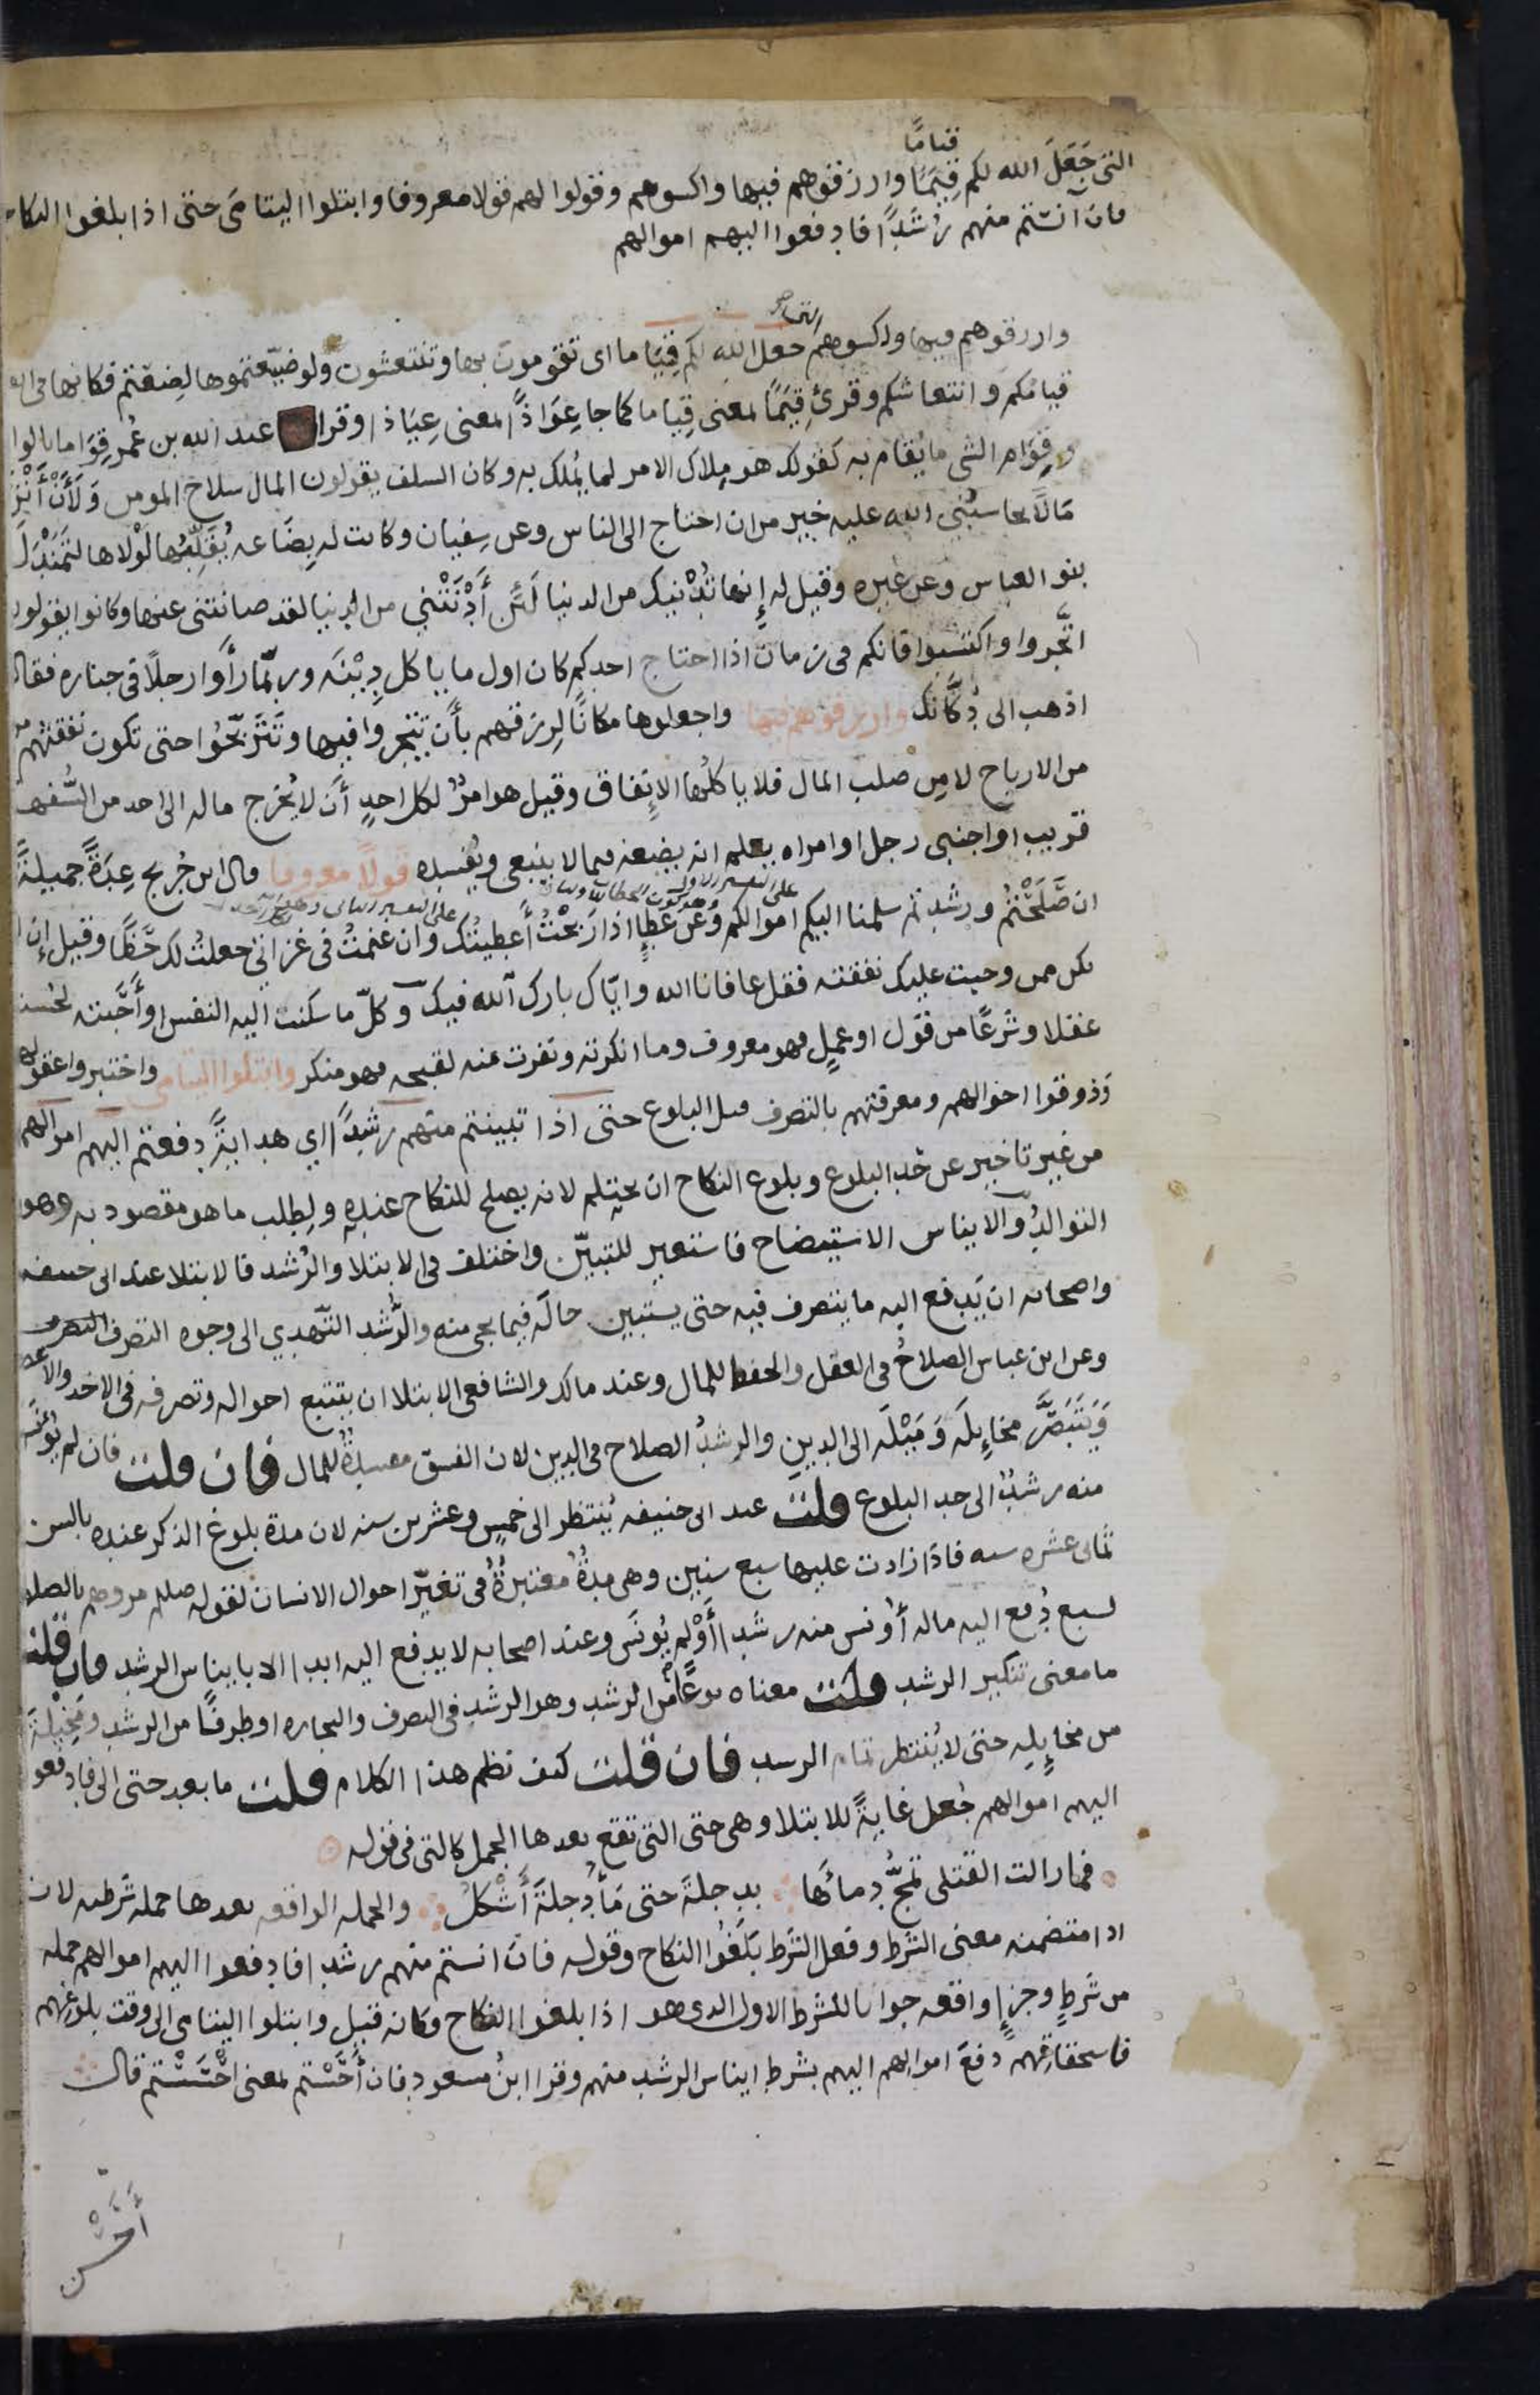 قياما
التى جَعَلَ الله لكم قِيَمًا وارزقوهم فيها واكسوهم وقولوا لهم قولا معروفا وابتلوا اليتامَى حتى اذا بلغوا النكاح
فان آنستم منهم رُشْدًا فادفعوا اليهم اموالهم
التى
وارزقوهم فيها واكسوهم جعل الله لكم قِيَاما اى تقومون بها وتنتعشون ولو ضيّعتموها لضِعْتم فكانها فى
قيامكم وانتعاشكم وقرئ قِيَمًا بمعنى قِياما كما جا عِوَاذًا بمعنى عِيَاذا وقرا عبد الله بن عُمر قِوَاما بالواو
وقِوَام الشى ما يُقام به كقولك هو مِلاك الامر لما يُملك به وكان السلف يقولون المال سلاح المومن وَلأَنْ أَتْرُكَ
مَالًا يحاسبُنِي الله عليه خير من ان احتاج الى الناس وعن سفيان وكانت له بِضَاعه يُقَلِّبُها لَوْلاها لتَمَنْدَلَ
بنو العباس وعن غيره وقيل له إنها تُدْنيك من الدنيا لَئن أَدْنَتْنِي من الدنيا لقد صانتنى عنها وكانوا يقولون
اتَّجروا واكتسبوا فانكم فى زمان اذا احتاج احدكم كان اول ما ياكل دِيْنَه وربّما رَأَوا رجلًا فى جنازه فقالوا
اذهب الى دُكَّانك وارزقوهم فيها واجعلوها مكانًا لرزقهم بأَن تتجروا فيها وتَتَرَبّحُوا حتى تكون نفقتهم
من الارباح لا من صلب المال فلا ياكلُها الإنفاق وقيل هو امرٌ لكل احدٍ أَن لا يُخرج ماله الى احد من السُّفها
قريب او اجنبى رجل او امراه يعلم انه يضعه فيما لا ينبغى ويُفسده قولًا معروفا قال ابن جُريج عِدَةً جميلةً
على التفسير الاول
ان صَلَحْتُم ورشدتم سلمنا اليكم اموالكم وعن عَطاءٍ اذا رَبحْتُ أَعطيتُك وان غنمتُ فى غزاتى جعلتُ لك حَظًّا وقيل إن لم
يكن ممن وجبت عليك نفقته فقل عافانا الله وايّاك بارك الله فيك وكلّ ما سكنت اليه النفس وأَحَبّته لحُسنه
عقلا وشَرعًا من قول او عملٍ فهو معروف وما انكرته ونفرت عنه لقبحه فهو منكر وابتلوا اليتامى واختبروا عقولهم
وَذوقوا احوالهم ومعرفتهم بالتصرف قبل البلوغ حتى اذا تبينتم منهم رشدًا اي هدايةً دفعتم اليهم اموالهم
من غير تاخير عن حَد البلوغ وبلوغ النكاح ان يحتلم لانه يصلح للنكاح عنده ولِطلب ما هو مقصود به وهو
التوالدُ والايناس الاستيضاح فاستعير للتبيّن واختلف فى الابتلا والرُشد فالابتلا عند ابى حنيفه
واصحابه ان يَدفع اليه ما يتصرف فيه حتى يستبين حالَه فيما يجى منه والرُّشد التّهدي الى وجوه التصرف
وعن ابن عباس الصلاحُ فى العقل والحفظ للمال وعند مالك والشافعى الابتلا ان يتتبع احواله وتصرفه فى الاخذ والاعطا
وَيَتَبَصَّر مخايِلَه وَمَيْلَه الى الدين والرشدُ الصلاح فى الدين لان الفسق مفسدةٌ للمال فان قلت فان لم يُونَس
منه رشدٌ الى حد البلوغ قلت عند ابى حنيفه يُنتظر الى خمسٍ وعشرين سنه لان مدة بلوغ الذكر عنده بالسن
ثمانى عشره سنه فاذا زادت عليها سبع سنين وهى مدةٌ معتبرةٌ فى تغيّر احوال الانسان لقوله صلعم مروهم بالصلاه
لسبع دُفع اليه ماله أُونس منه رشد أَوْ لم يُونَس وعند اصحابه لا يدفع اليه ابدا الا بايناس الرشد فان قلت
ما معنى تنكير الرشد قلت معناه نوعًا من الرشد وهو الرشد فى التصرف والتجاره او طرفًا من الرشد ومَخِيلةً
من مخايِلِه حتى لا يُنتظر تمام الرشد فان قلت كيف نظم هذا الكلام قلت ما بعد حتى الى فادفعوا
اليهم اموالهم جُعل غايةً للابتلا وهى حتى التى تقع بعدها الجمل كالتى فى قوله
فما زالت القتلى تمجُّ دماءَها بدجلةَ حتى مَاءُ دجلةَ أَشْكَلُ والجمله الواقعه بعدها جمله شرطيه لان
اذا متضمنه معنى الشرط وفعل الشرط بَلَغُوا النكاح وقوله فان انستم منهم رشدا فادفعوا اليهم اموالهم جمله
من شَرطٍ وجزاءٍ واقعه جوابا للشرط الاول الذى هو اذا بلغوا النكاح فكانه قيل وابتلوا اليتامى الى وقت بلوغهم
فاستحقاقهم دفعَ اموالهم اليهم بشرط ايناس الرشد منهم وقرا ابنُ مسعود فان أَحَسْتم بمعنى احْسَسْتم قال
أَحَسْنَ